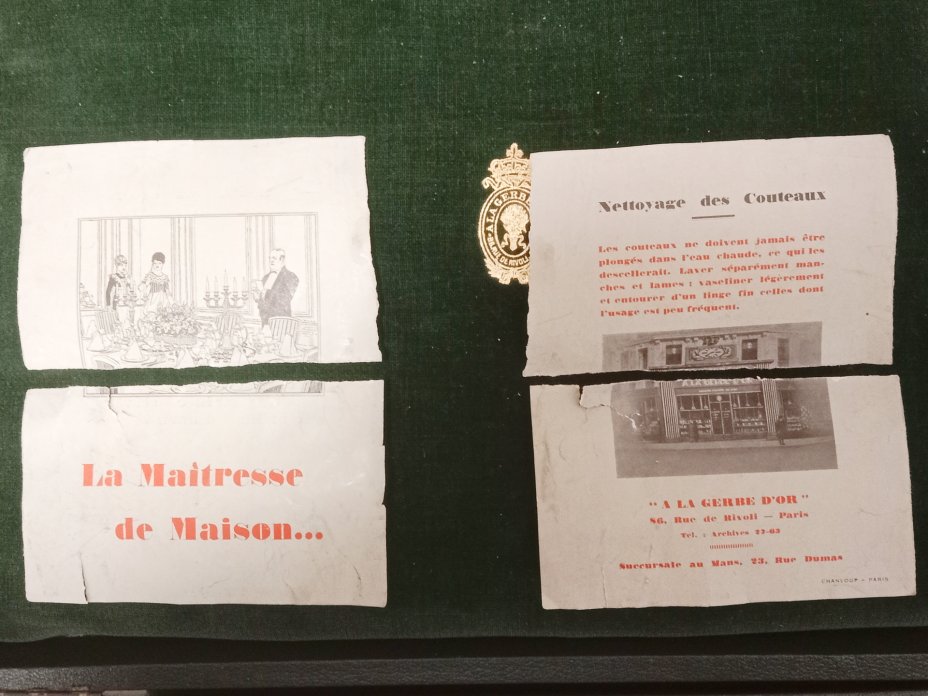 La Maîtresse
de Maison...
A LA GERBE
RUE DE RIVOLI
Nettoyage des Couteaux
Les couteaux ne doivent jamais être
plongés dans l'eau chaude, ce qui les
descellerait. Laver séparément man-
ches et lames : vaseliner légèrement
et entourer d'un linge fin celles dont
l'usage est peu fréquent.
A LA GERBE D'OR
" A LA GERBE D'OR "
86, Rue de Rivoli — Paris
Tel. : Archives 22-63
Succursale au Mans, 23, Rue Dumas
CHANLOUP - PARIS